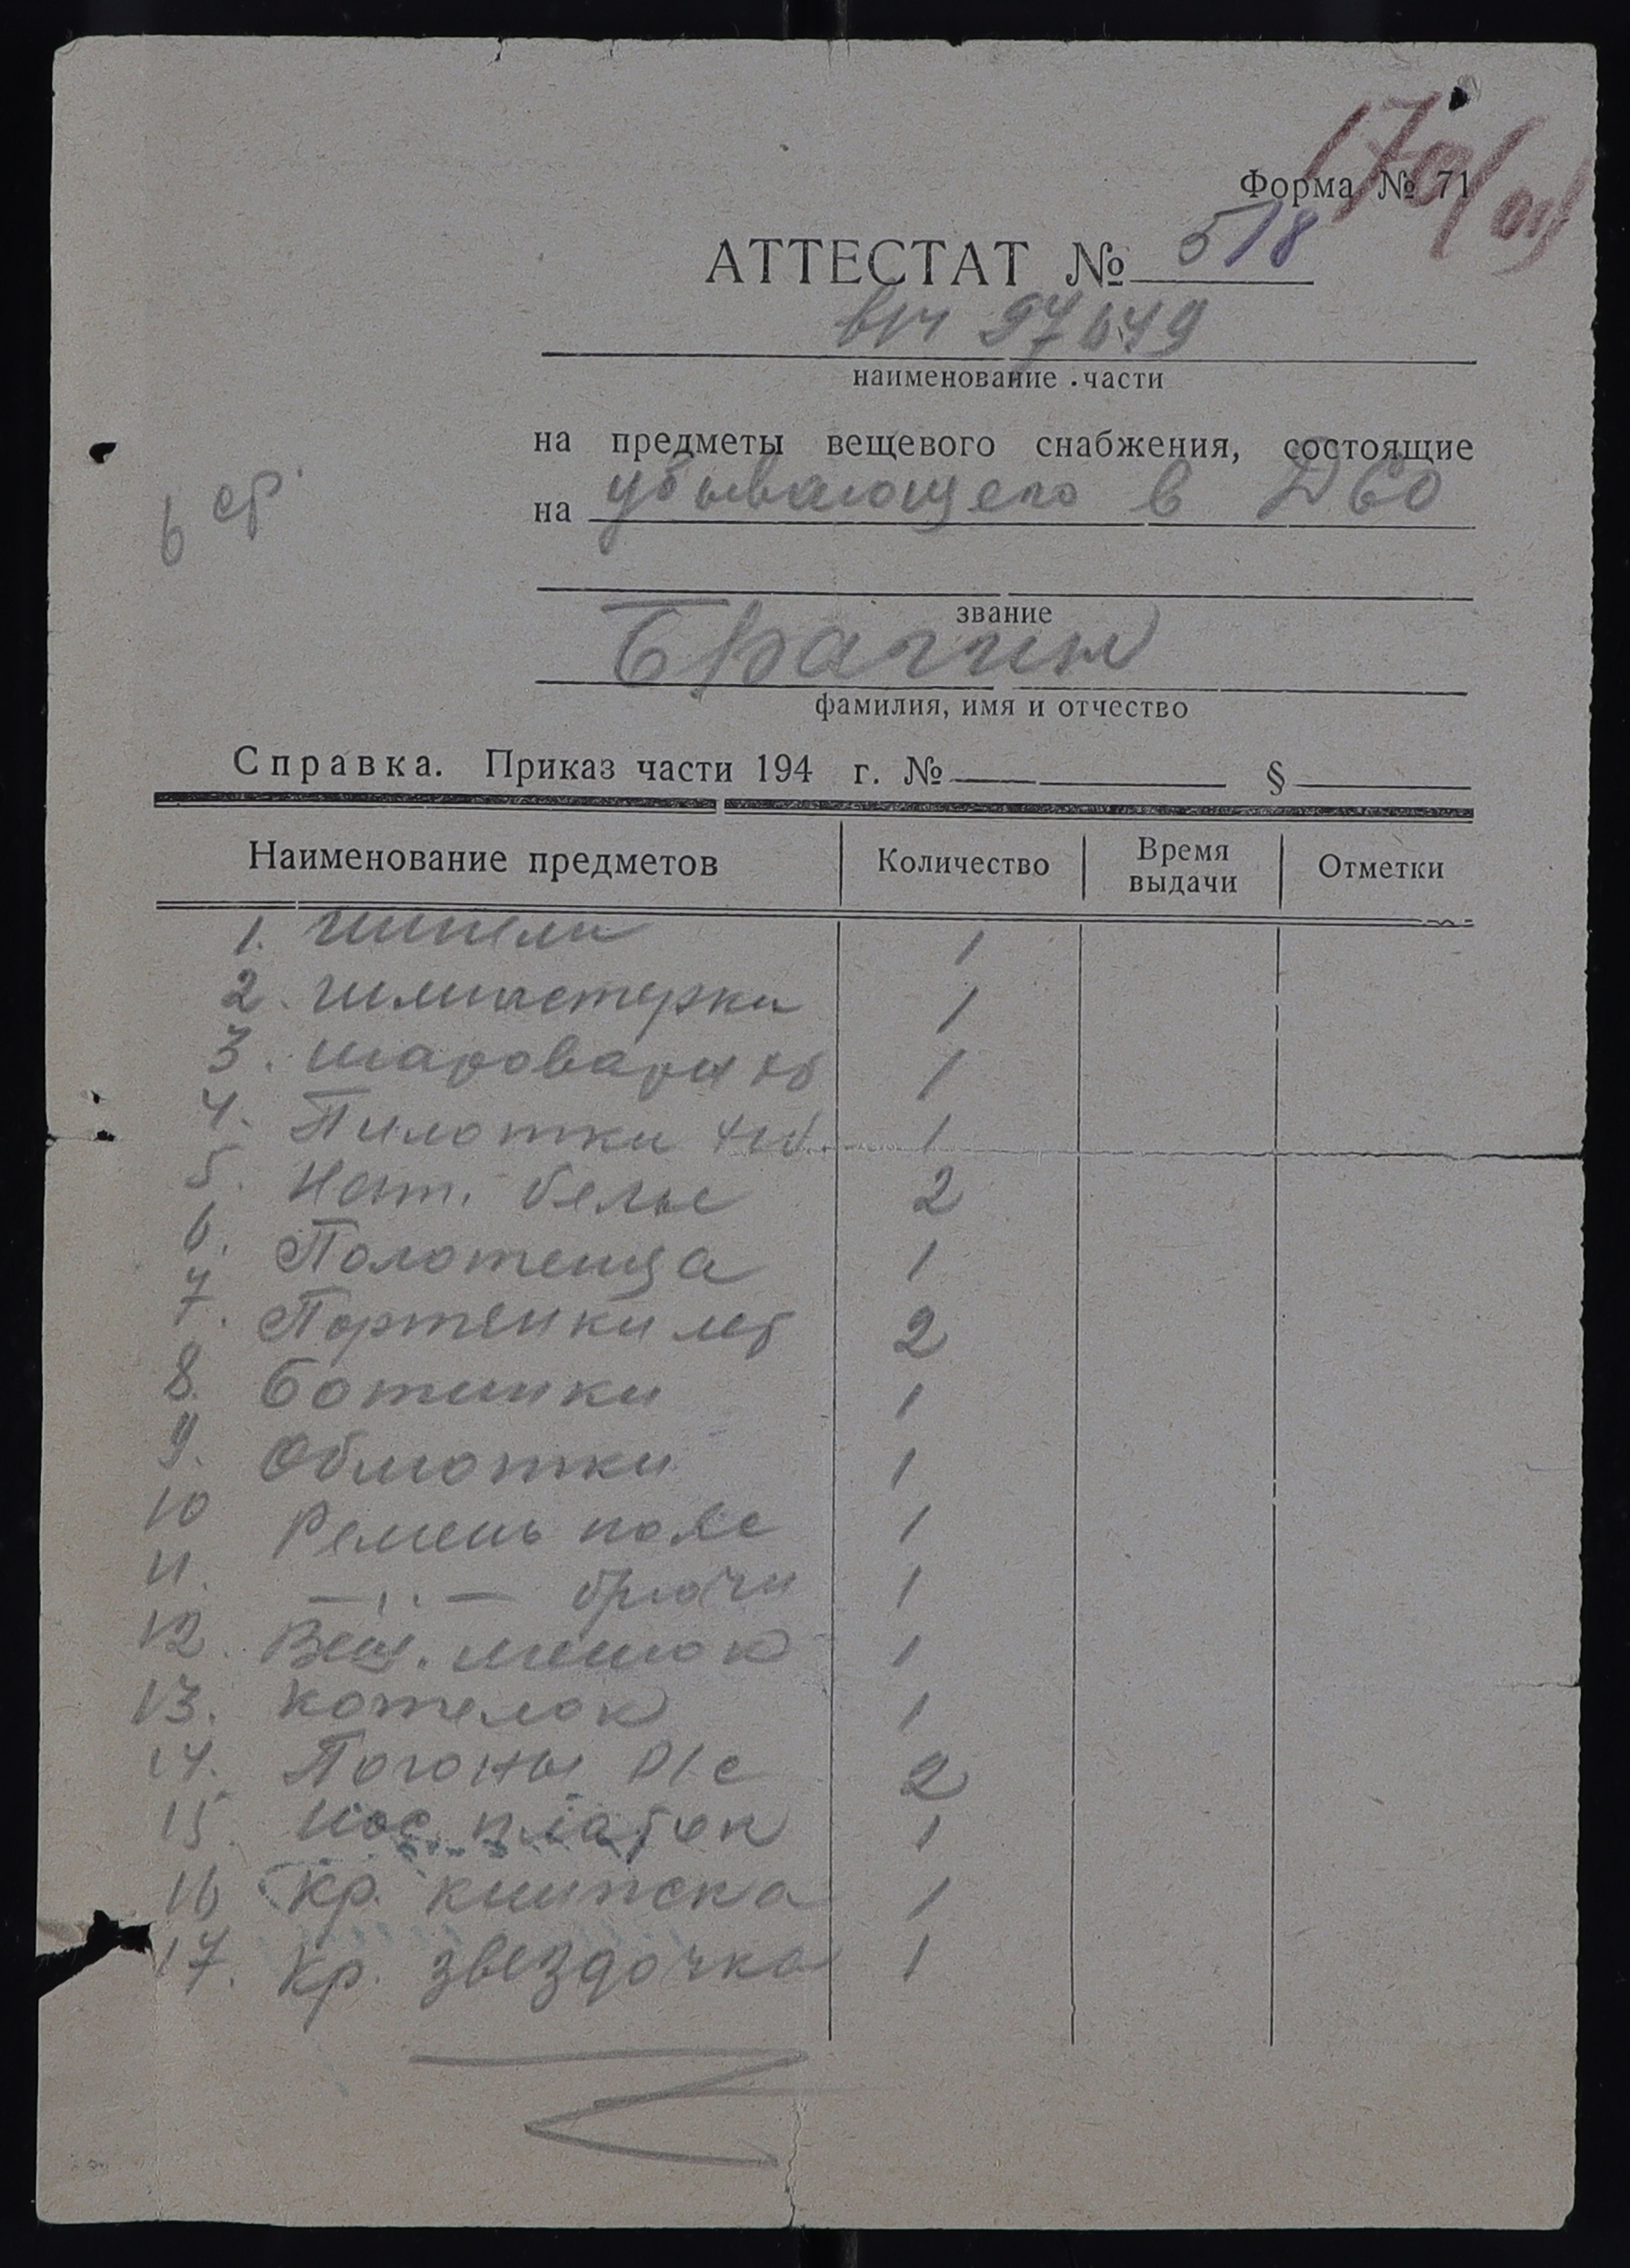 Форма № 71
АТТЕСТАТ № 518
в/ч 97649
наименование части
на предметы вещевого снабжения, состоящие
на убывающего в ДВО
звание
Брагин
фамилия, имя и отчество
Справка. Приказ части 194 г. № §
Наименование предметов Количество Время выдачи Отметки
1. шинели 1
2. гимнастерки 1
3. шаровары хб 1
4. Пилотки 1
5. Нат. белье 2
6. Полотенца 1
7. Портянки лет 2
8. Ботинки 1
9. Обмотки 1
10 Ремень пояс 1
11. —„— брючн 1
12. Вещ. мешок 1
13. Котелок 1
14. Погоны р/с 2
15. Нос платок 1
16 Кр. книжка 1
17. Кр. звездочка 1